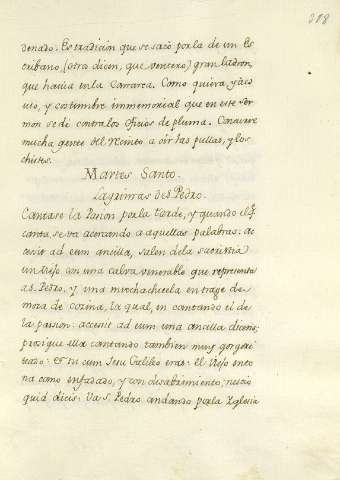 318
denado. Es tradicion que se sacò por la de un Es
cribano, (otros dicen, que ventero) gran ladron
que havia en la Comarca. Como quiera, y
uso, y costumbre immemorial que en este Ser
mon se dè contra los oficios de pluma. Concurre
mucha gente del recinto a oir las pullas, y los
chistes.
Martes Santo.
Lagrimas de S. Pedro.
Cantase la Pasion por la tarde, y quando el q.e
canta se va acercando a aquellas palabras: ac
cesit ad eum ancilla, salen de la sacristia
un Viejo con una calva venerable que representa
a S. Pedro, y una muchachuela en trage de
moza de cozina, la qual, en cantando el de
la passion: accesit ad eum una ancilla dicens;
prosigue ella cantando tambien muy gorgori
teado: et tu cum Jesu Galileo eras: el Viejo ento
na como enfadado, y con desabrimiento, nescio
quid dicis: Va S. Pedro andando por la Yglesia